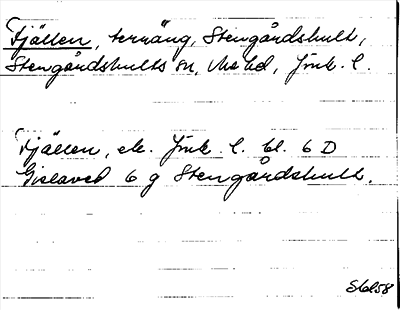 Fjällen, ternäng, Stengårdshult,
Stengårdshults sn, Mo hd, Jönk. l.
Fjällen, ek. Jönk. l. bl. 6 D
Gislaved 6 g Stengårdshult.